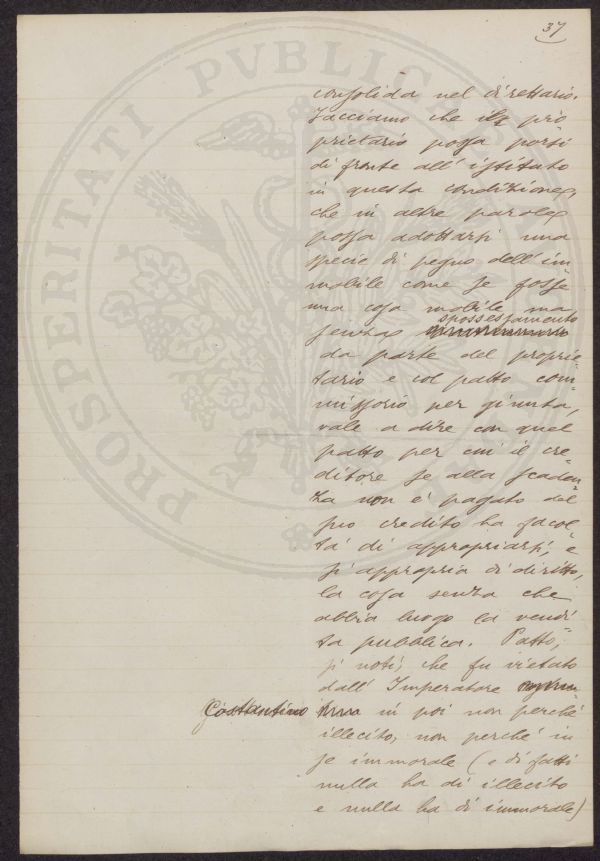 37
consolida nel direttario.
Facciamo che il pro
prietario possa porsi
di fronte all' istituto
in questa condizione,
che in altre parole
possa adottarsi una
specie di pegno dell' im
mobile come se fosse
una cosa mobile ma
senza spossessamento
da parte del proprie-
tario e col patto com-
missorio per giunta,
vale a dire con quel
patto per cui il cre-
ditore se alla scaden-
za non è pagato del
suo credito ha facol-
tà di appropriarsi, e
si appropria di diritto,
la cosa senza che
abbia luogo la vendi
ta pubblica. Patto,
si noti, che fu vietato
dall' Imperatore
Costantino in poi non perchè
illecito, non perchè in
se immorale (e di fatti
nulla ha di illecito
e nulla ha di immorale)
PROSPERITATI PVBLICAE